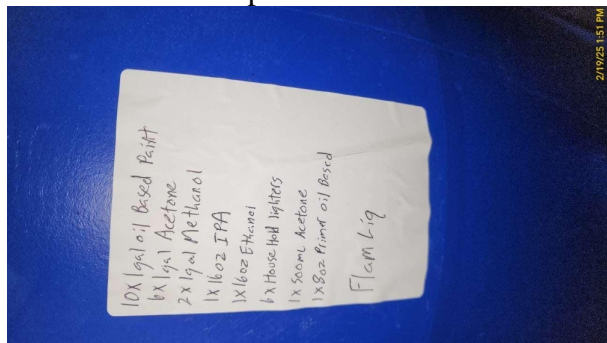 10x 1gal oil Based Paint
6x 1gal Acetone
2x 1gal Methanol
1x 16oz IPA
1x 16oz Ethanol
6x House Hold lighters
1x 500mL Acetone
1x 8oz Primer oil Based
Flam Liq
2/19/25 1:51 PM